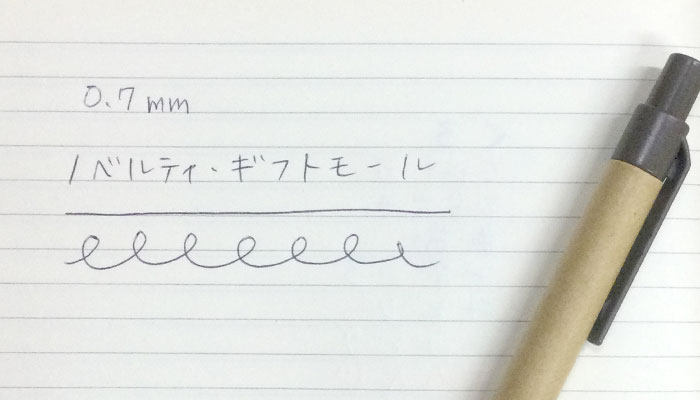 0.7mm
ノベルティ・ギフトモール